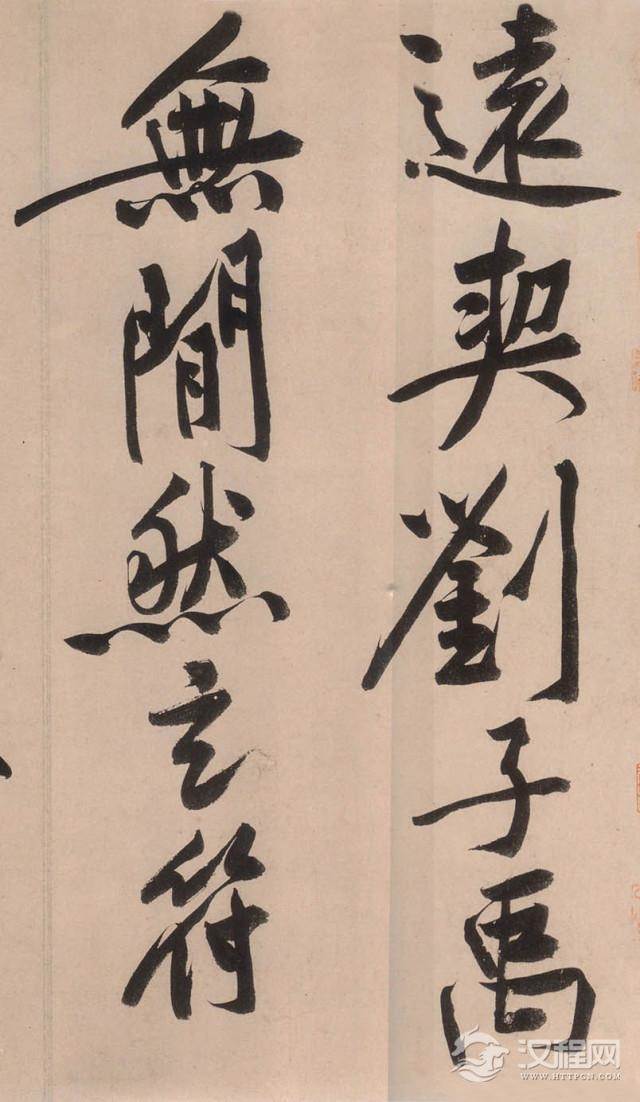 遠契劉子禹
無間然玄符
汉程网
WWW.HTTPCN.COM